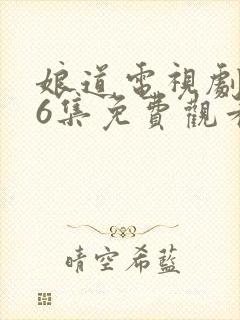 娘道電視劇
6集免費觀看
晴空希藍